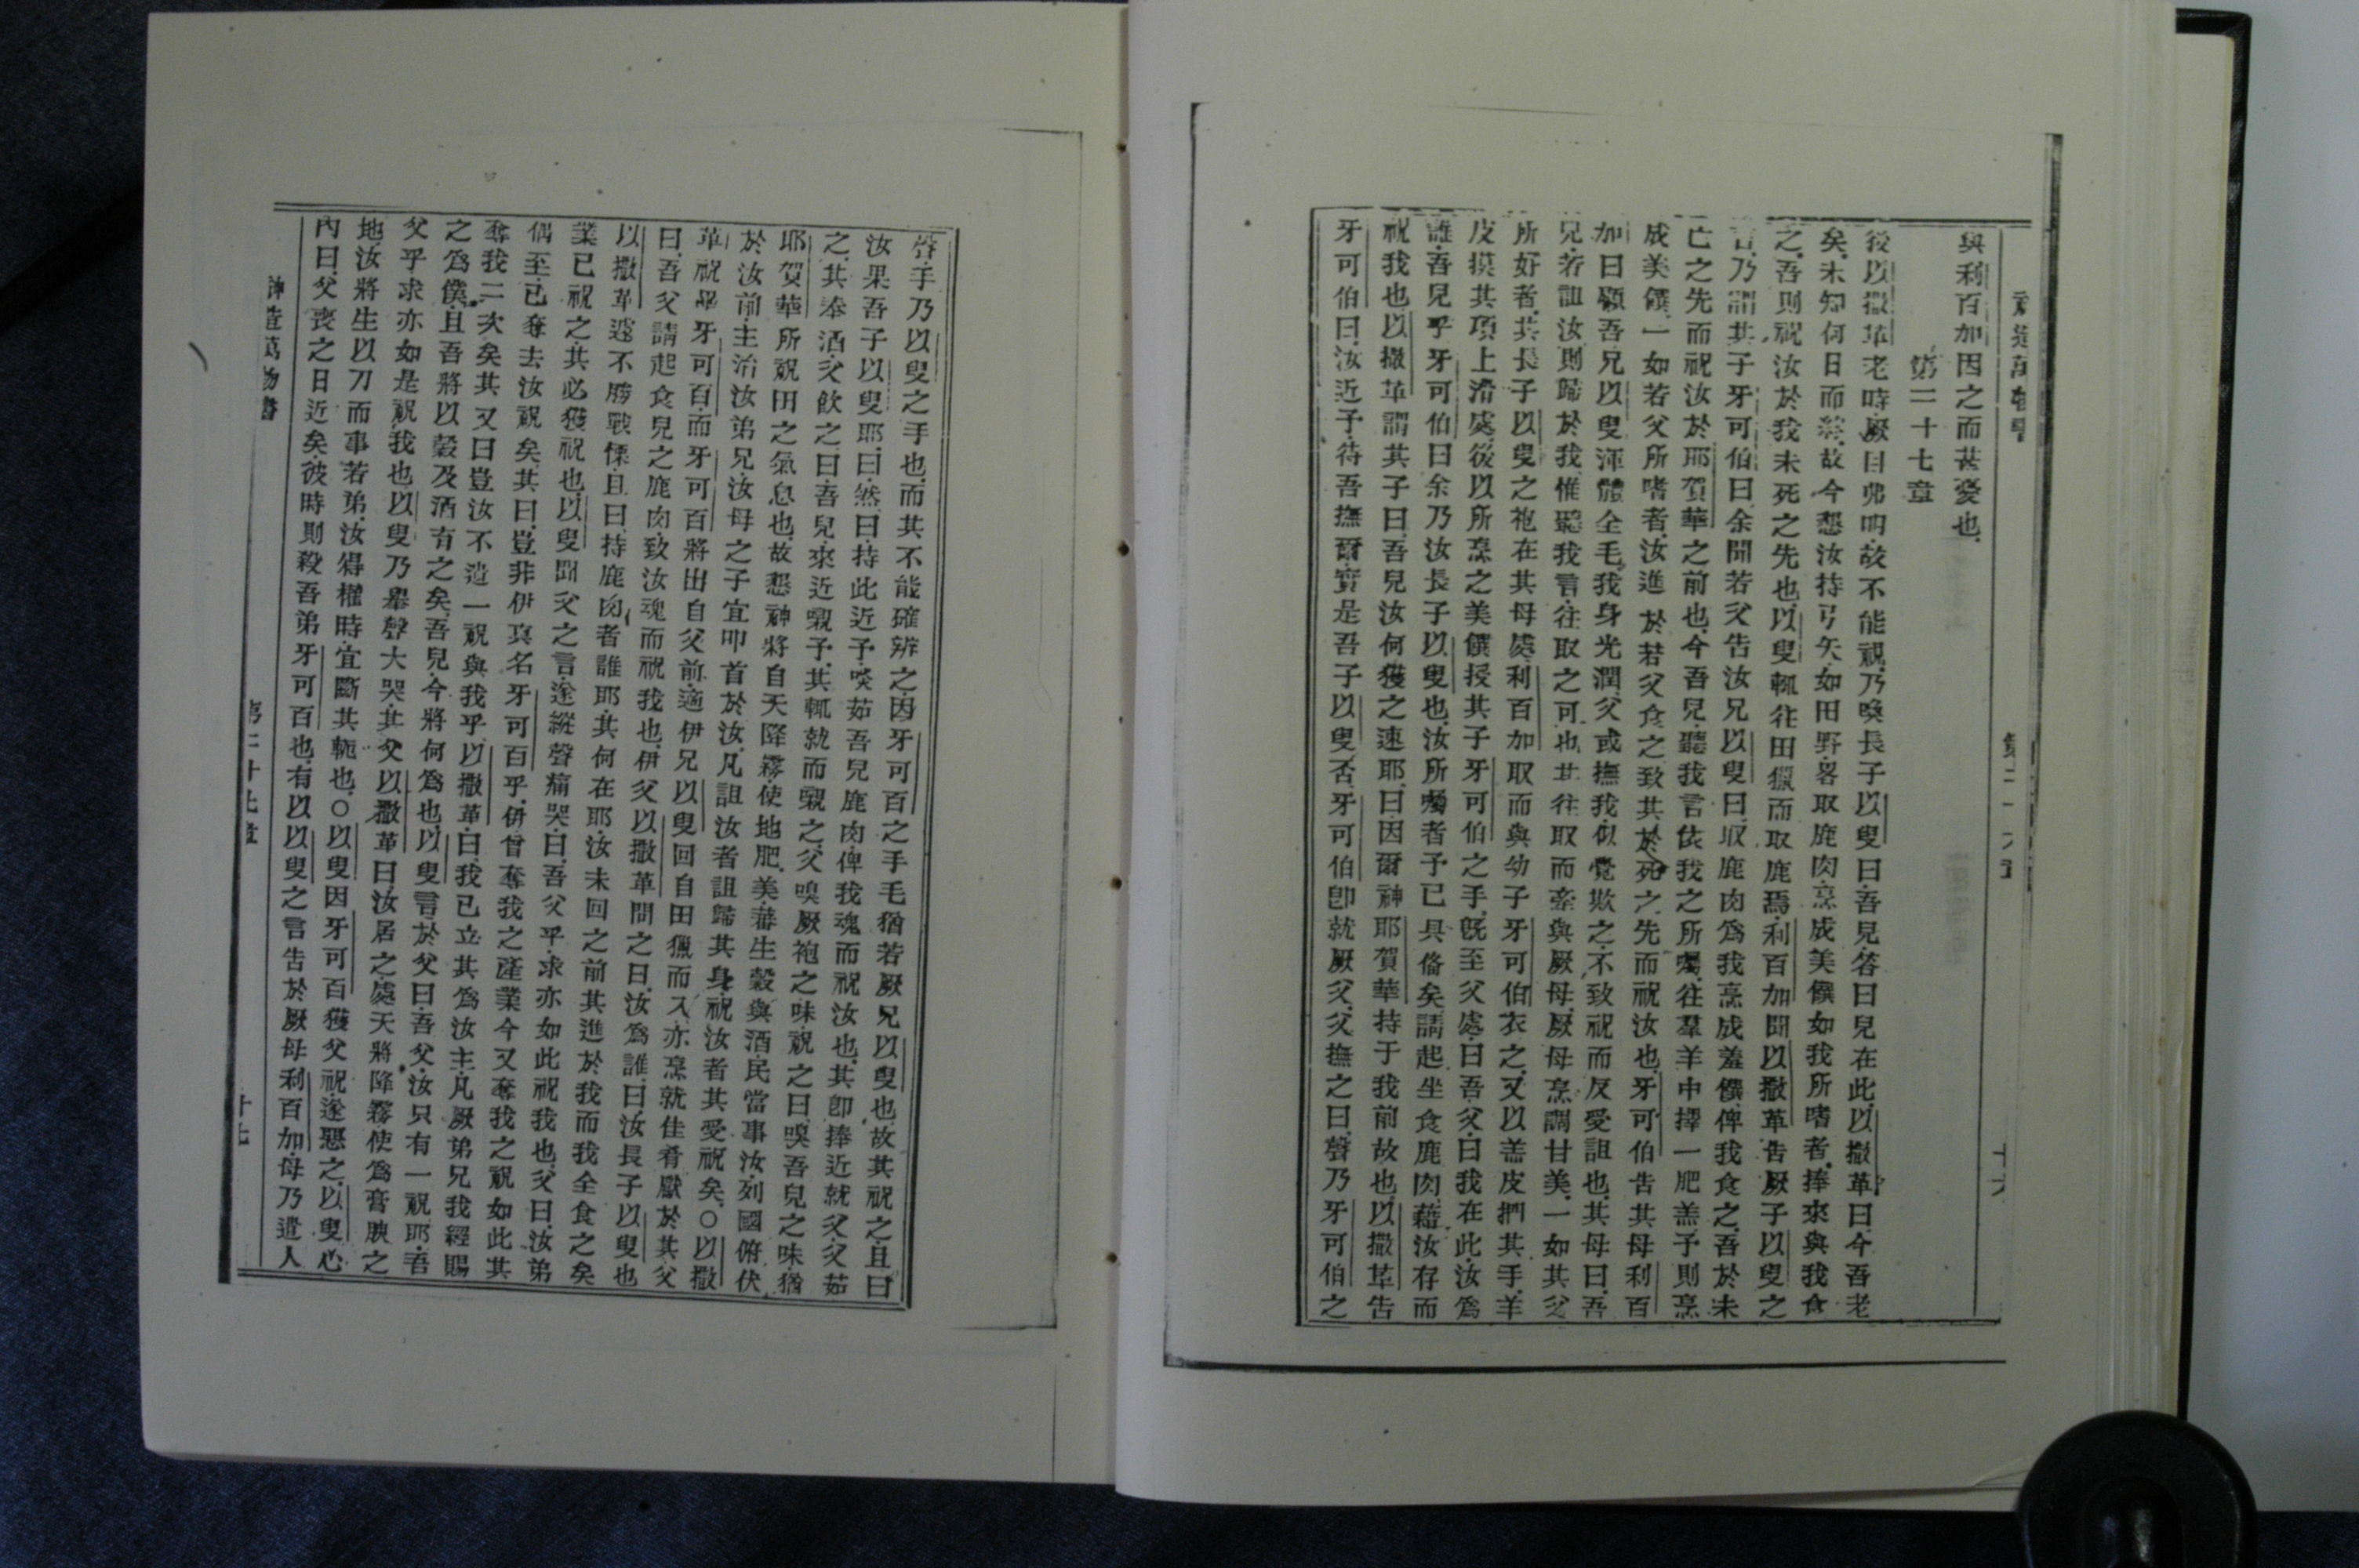 與利百加因之而甚憂也
第二十七章
後以撒革老時厥目弗明故不能視乃喚長子以叟曰吾兒答曰兒在此以撒革曰今吾老
矣未知何日而終故今懇汝持弓矢如田野畧取鹿肉烹成美饌如我所嗜者捧來與我食
之吾則祝汝於我未死之先也以叟輒往田獵而取鹿焉利百加聞以撒革告厥子以叟之
言乃謂其子牙可伯曰余聞若父告汝兄以叟曰取鹿肉爲我烹成羞饌俾我食之吾於未
亡之先而祝汝於耶賀華之前也今吾兒聽我言依我之所囑往羣羊中擇一肥羔予則烹
成美饌一如若父所嗜者汝進於若父食之致其於死之先而祝汝也牙可伯告其母利百
加曰顧吾兄以叟渾體全毛我身光潤父或撫我似覺欺之不致祝而反受詛也其母曰吾
兒若詛汝則歸於我惟聽我言往取之可也其往取而牽與厥母厥母烹調甘美一如其父
所好者其長子以叟之袍在其母處利百加取而與幼子牙可伯衣之又以羔皮捫其手羊
皮摸其項上滑處後以所烹之美饌授其子牙可伯之手旣至父處曰吾父曰我在此汝爲
誰吾兒乎牙可伯曰余乃汝長子以叟也汝所囑者予已具俻矣請起坐食鹿肉藉汝存而
祝我也以撒革謂其子曰吾兒汝何獲之速耶曰因爾神耶賀華持于我前故也以撒革告
牙可伯曰汝近予待吾撫爾實是吾子以叟否牙可伯卽就厥父父撫之曰聲乃牙可伯之
聲手乃以叟之手也而其不能確辨之因牙可百之手毛猶若厥兄以叟也故其祝之且曰
汝果吾子以叟耶曰然曰持此近予啖茹吾兒鹿肉俾我魂而祝汝也其卽捧近就父父茹
之其奉酒父飲之曰吾兒來近親予其輒就而親之父嗅厥袍之味祝之曰嗅吾兒之味猶
耶賀華所祝田之氣息也故懇神將自天降霧使地肥美蕃生穀與酒民當事汝列國俯伏
於汝前主治汝弟兄汝母之子宜叩首於汝凡詛汝者詛歸其身祝汝者其受祝矣○以撒
革祝畢牙可百而牙可百將出自父前適伊兄以叟回自田獵而入亦烹就佳肴獻於其父
曰吾父請起食兒之鹿肉致汝魂而祝我也伊父以撒革問之曰汝爲誰曰汝長子以叟也
以撒革遂不勝戰慄且曰持鹿肉者誰耶其何在耶汝未回之前其進於我而我全食之矣
業已祝之其必獲祝也以叟聞父之言遂縱聲痛哭曰吾父乎求亦如此祝我也父曰汝弟
偶至已奪去汝祝矣其曰豈非伊眞名牙可百乎伊曾奪我之產業今又奪我之祝如此其
奪我二次矣其又曰豈汝不遺一祝與我乎以撒革曰我已立其爲汝主凡厥弟兄我經賜
之爲僕且吾將以穀及酒有之矣吾兒今將何爲也以叟言於父曰吾父汝只有一祝耶吾
父乎求亦如是祝我也以叟乃舉聲大哭其父以撒革曰汝居之處天將降霧使爲膏腴之
地汝將生以刀而事若弟汝得權時宜斷其軛也○以叟因牙可百獲父祝遂惡之以叟心
內曰父喪之日近矣彼時則殺吾弟牙可百也有以以叟之言告於厥母利百加母乃遣人
神造萬物書
第二十七章
十七